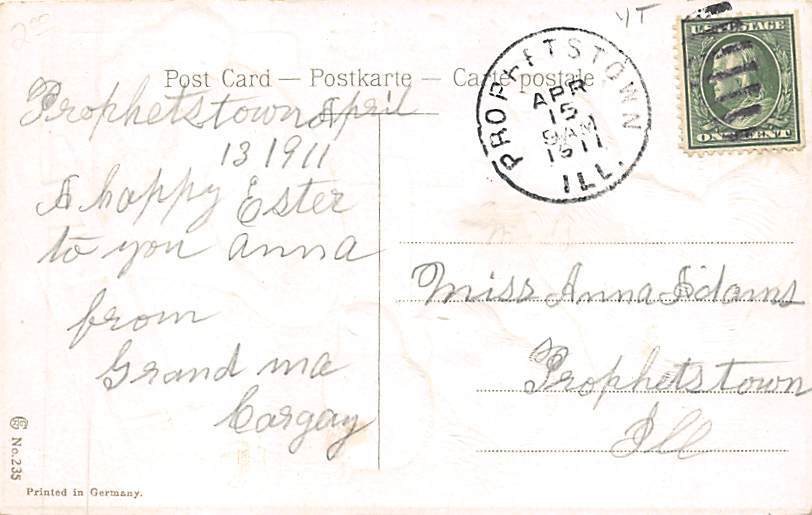 200
YT
U.S. POSTAGE
ONE CENT
PROPHETSTOWN
APR
15
9 AM
1911
ILL.
Post Card — Postkarte — Carte postale
Prophetstown April
13 1911
A happy Ester
to you Anna
from
Grand ma
Cargay
Miss Anna Adams
Prophetstown
Ill
No. 235
Printed in Germany.